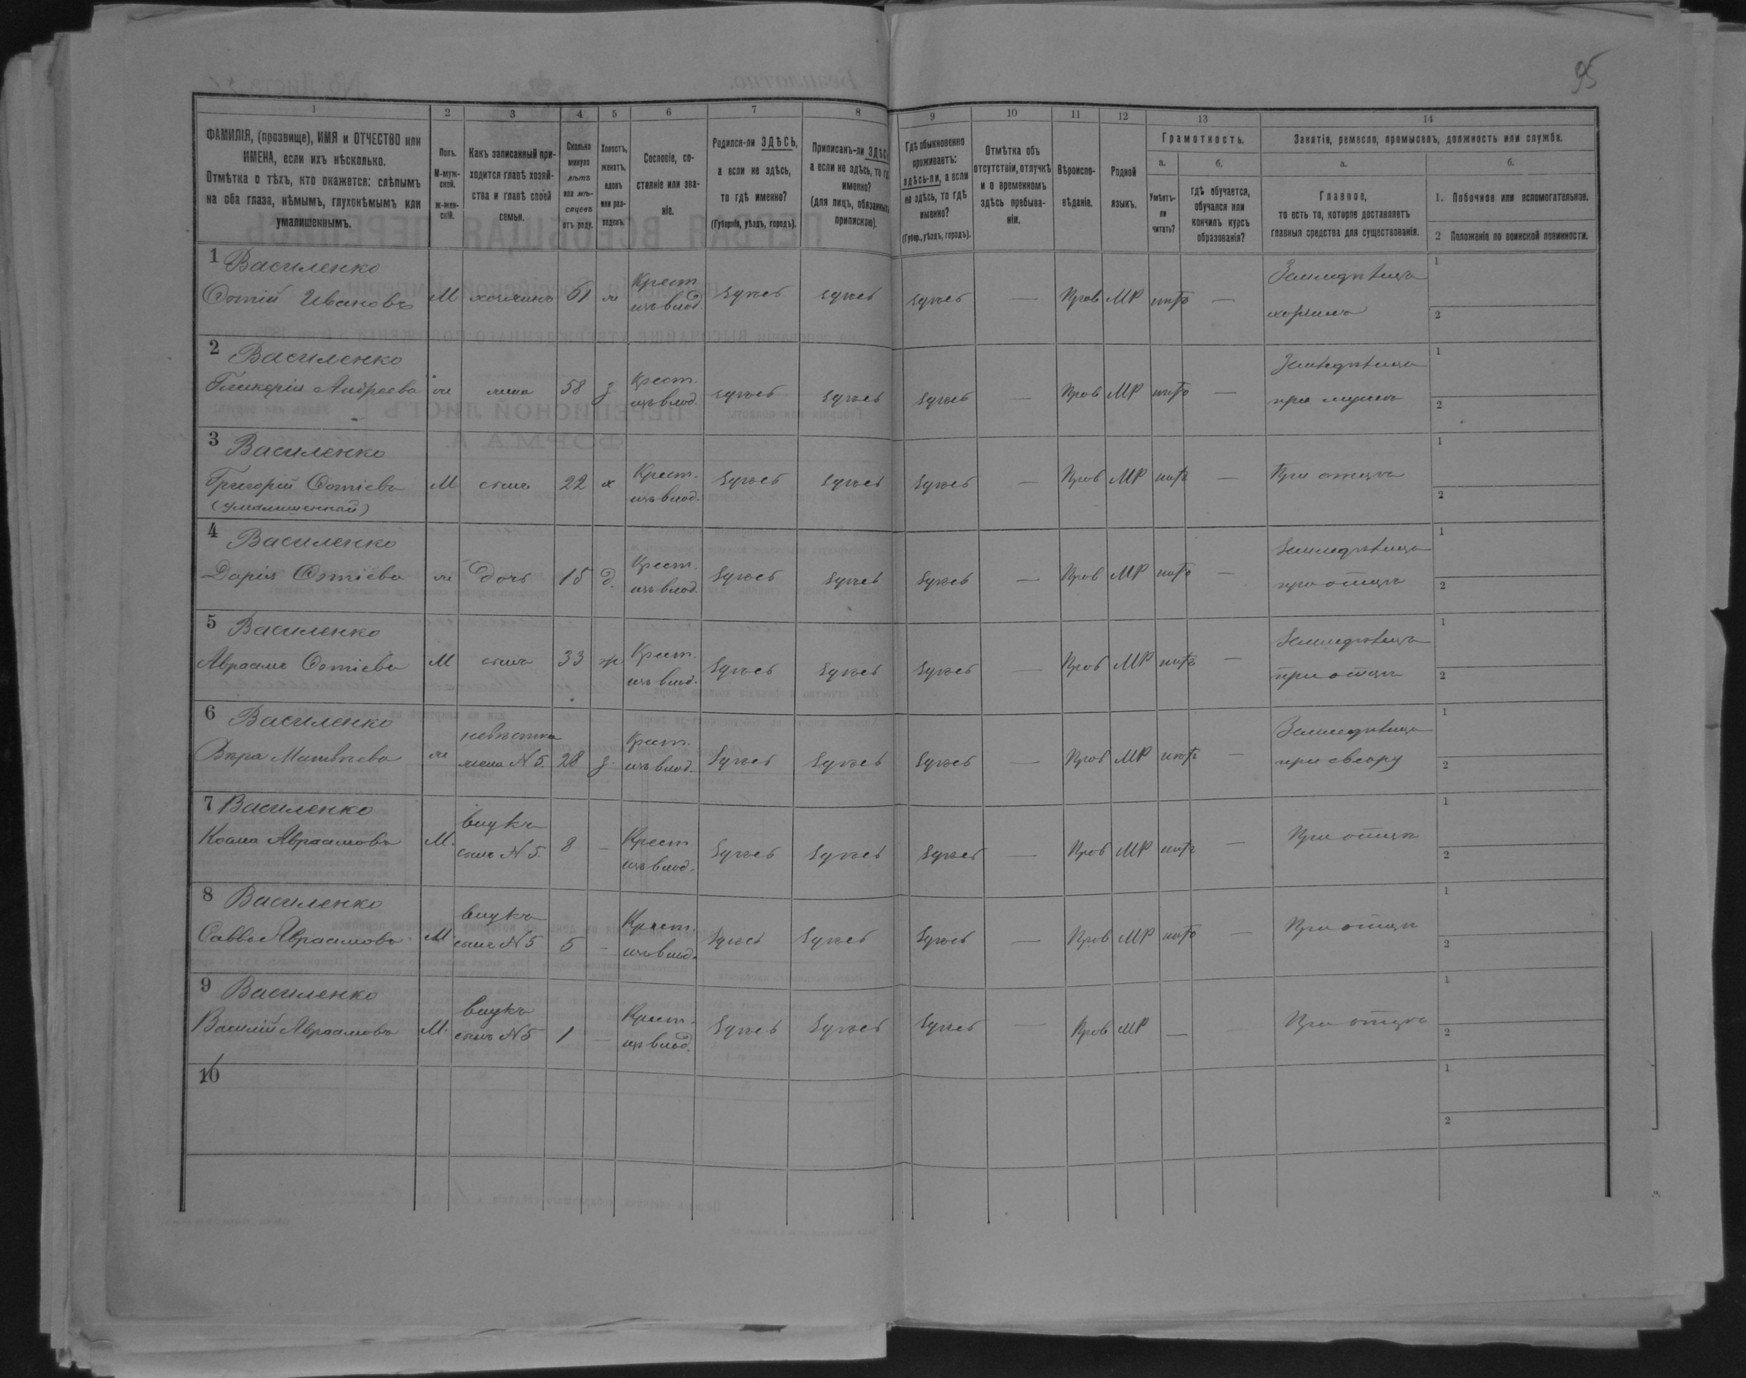 95
1 2 3 4 5 6 7 8 9 10 11 12 13 14
ФАМИЛІЯ, (прозвище), ИМЯ и ОТЧЕСТВО или
ИМЕНА, если ихъ нѣсколько.
Отмѣтка о тѣхъ, кто окажется: слѣпымъ
на оба глаза, нѣмымъ, глухонѣмымъ или
умалишеннымъ.
Полъ.
М-муж-
ской.
Ж-жен-
скій.
Какъ записанный при-
ходится главѣ хозяй-
ства и главѣ своей
семьи.
Сколько
минуло
лѣтъ
или мѣ-
сяцевъ
отъ роду.
Холостъ,
женатъ,
вдовъ
или раз-
веденъ.
Сословіе, со-
стояніе или зва-
ніе.
Родился-ли ЗДѢСЬ,
а если не здѣсь,
то гдѣ именно?
(Губернія, уѣздъ, городъ).
Приписанъ-ли ЗДѢСЬ
а если не здѣсь, то гдѣ
именно?
(для лицъ, обязанныхъ
припиской).
Гдѣ обыкновенно
проживаетъ:
здѣсь-ли, а если
не здѣсь, то гдѣ
именно?
(Губер., уѣздъ, городъ).
Отмѣтка объ
отсутствіи, отлучкѣ
и о временномъ
здѣсь пребыва-
ніи.
Вѣроиспо-
вѣданіе.
Родной
языкъ.
Грамотность.
а. б.
Умѣетъ-
ли
читать?
гдѣ обучается,
обучался или
кончилъ курсъ
образованія?
Занятія, ремесло, промыселъ, должность или служба.
а. б.
Главное,
то есть то, которое доставляетъ
главныя средства для существованія.
1. Побочное или вспомогательное.
2 Положеніе по воинской повинности.
1 Василенко
Фотій Ивановъ М хозяинъ 61 ж Крест. изъ влад. здѣсь здѣсь здѣсь — Прав МР нѣтъ — Земледѣлецъ хозяинъ 1 2
2 Василенко
Гликерія Андреева ж жена 58 з Крест. изъ влад. здѣсь здѣсь здѣсь — Прав МР нѣтъ — Земледѣлица при мужѣ 1 2
3 Василенко
Григорій Фотіевъ М сынъ 22 х Крест. изъ влад. здѣсь здѣсь здѣсь — Прав МР нѣтъ — При отцѣ 1 2
(умалишенный)
4 Василенко
Дарія Фотіева ж дочь 15 д. Крест. изъ влад. здѣсь здѣсь здѣсь — Прав МР нѣтъ — Земледѣлица при отцѣ 1 2
5 Василенко
Авраамъ Фотіевъ М сынъ 33 ж Крест. изъ влад. здѣсь здѣсь здѣсь — Прав МР нѣтъ — Земледѣлецъ при отцѣ 1 2
6 Василенко
Вѣра Матвѣева ж невѣстка жена №5. 28 з. Крест. изъ влад. здѣсь здѣсь здѣсь — Прав МР нѣтъ — Земледѣлица при свекру 1 2
7 Василенко
Косма Авраамовъ М. внукъ сынъ №5. 8 — Крест. изъ влад. здѣсь здѣсь здѣсь — Прав МР нѣтъ — При отцѣ 1 2
8 Василенко
Савва Авраамовъ М. внукъ сынъ №5 5 — Крест. изъ влад. здѣсь здѣсь здѣсь — Прав МР нѣтъ — При отцѣ 1 2
9 Василенко
Василій Авраамовъ М. внукъ сынъ №5 1 — Крест. изъ влад. здѣсь здѣсь здѣсь — Прав МР — При отцѣ 1 2
10 1 2